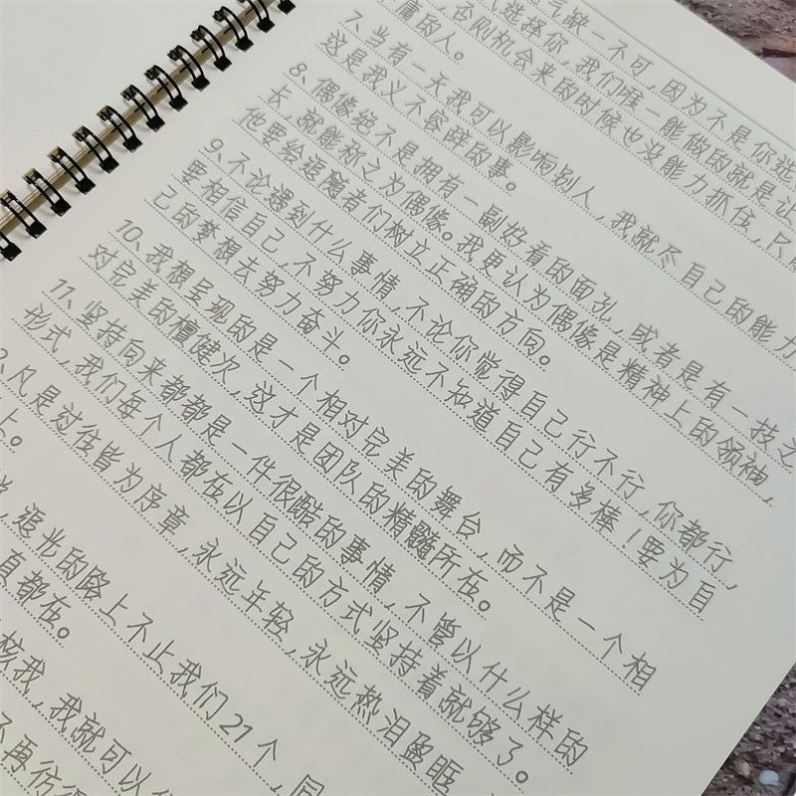 气缺一不可，因为不是你选
选择你，我们唯一能做的就是让
，否则机会来的时候也没能力抓住，只能
庸的人。
7、当有一天我可以影响别人，我就尽自己的能力
这是我义不容辞的事。
8、偶像绝不是拥有一副好看的面孔，或者是有一技之
长，就能称之为偶像。我更认为偶像是精神上的领袖，
他要给追随者们树立正确的方向。
9、不论遇到什么事情，不论你觉得自己行不行，你都行，
要相信自己，不努力你永远不知道自己有多棒！要为自
己的梦想去努力奋斗。
10、我想呈现的是一个相对完美的舞台，而不是一个相
对完美的檀健次，这才是团队的精髓所在。
11、坚持向来都都是一件很酷的事情，不管以什么样的
形式，我们每个人都在以自己的方式坚持着就够了。
2、凡是过往皆为序章，永远年轻，永远热泪盈眶
上。
，追光的路上不止我们21个，
都在。
核我，我就可以
不再彷徨